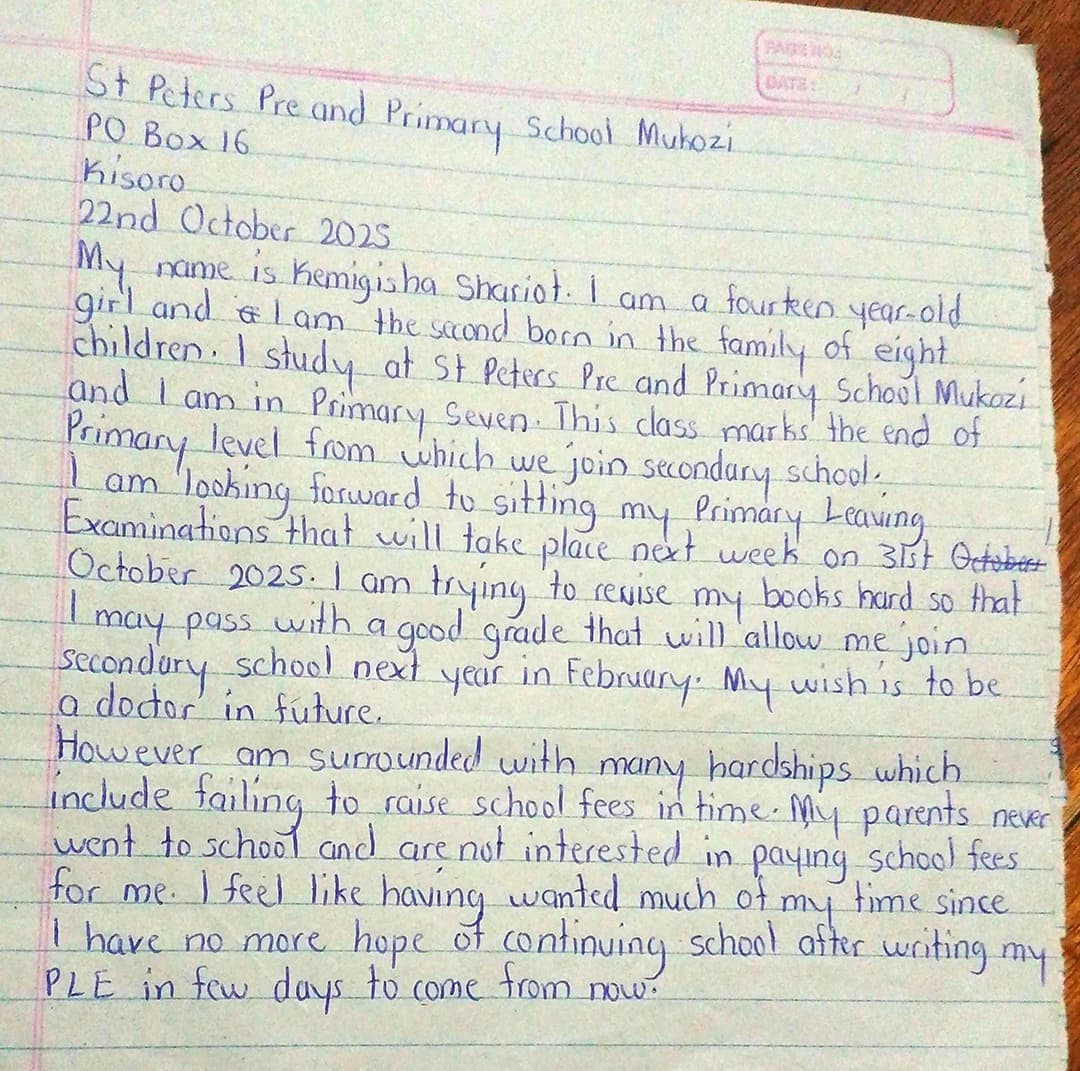 PAGE NO.:
DATE: / /
St Peters Pre and Primary School Mukozi
PO Box 16
Kisoro
22nd October 2025
My name is Kemigisha Shariot. I am a fourteen year-old
girl and I am the second born in the family of eight
children. I study at St Peters Pre and Primary School Mukozi
and I am in Primary Seven. This class marks the end of
Primary level from which we join secondary school.
I am looking forward to sitting my Primary Leaving
Examinations that will take place next week on 31st October
October 2025. I am trying to revise my books hard so that
I may pass with a good grade that will allow me join
secondary school next year in February. My wish is to be
a doctor in future.
However am surrounded with many hardships which
include failing to raise school fees in time. My parents never
went to school and are not interested in paying school fees
for me. I feel like having wanted much of my time since
I have no more hope of continuing school after writing my
PLE in few days to come from now.